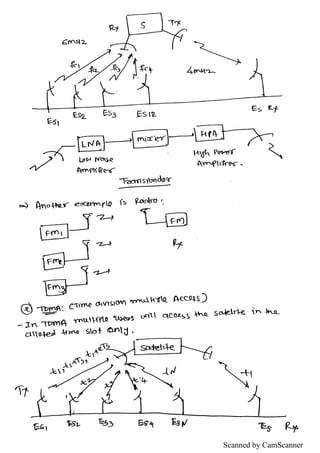 Rx S Tx
6MHz
fc1 fc2 fc3 fc4
4MHz
ES1 ES2 ES3 ES12 ES Rx
LNA mixer HPA
Low Noise Amplifier
High Power Amplifier.
Transponder
=) Another example is Radio:
FM1 FM
FM2 Rx
FM3
② TDMA: (Time division multiple Access)
- In TDMA multiple users will access the satelite in the
alloted time slot only.
Satelite
t2 t3 t4 tN t1
Tx
ES1 ES2 ES3 ES4 ESN ES Rx
Scanned by CamScanner